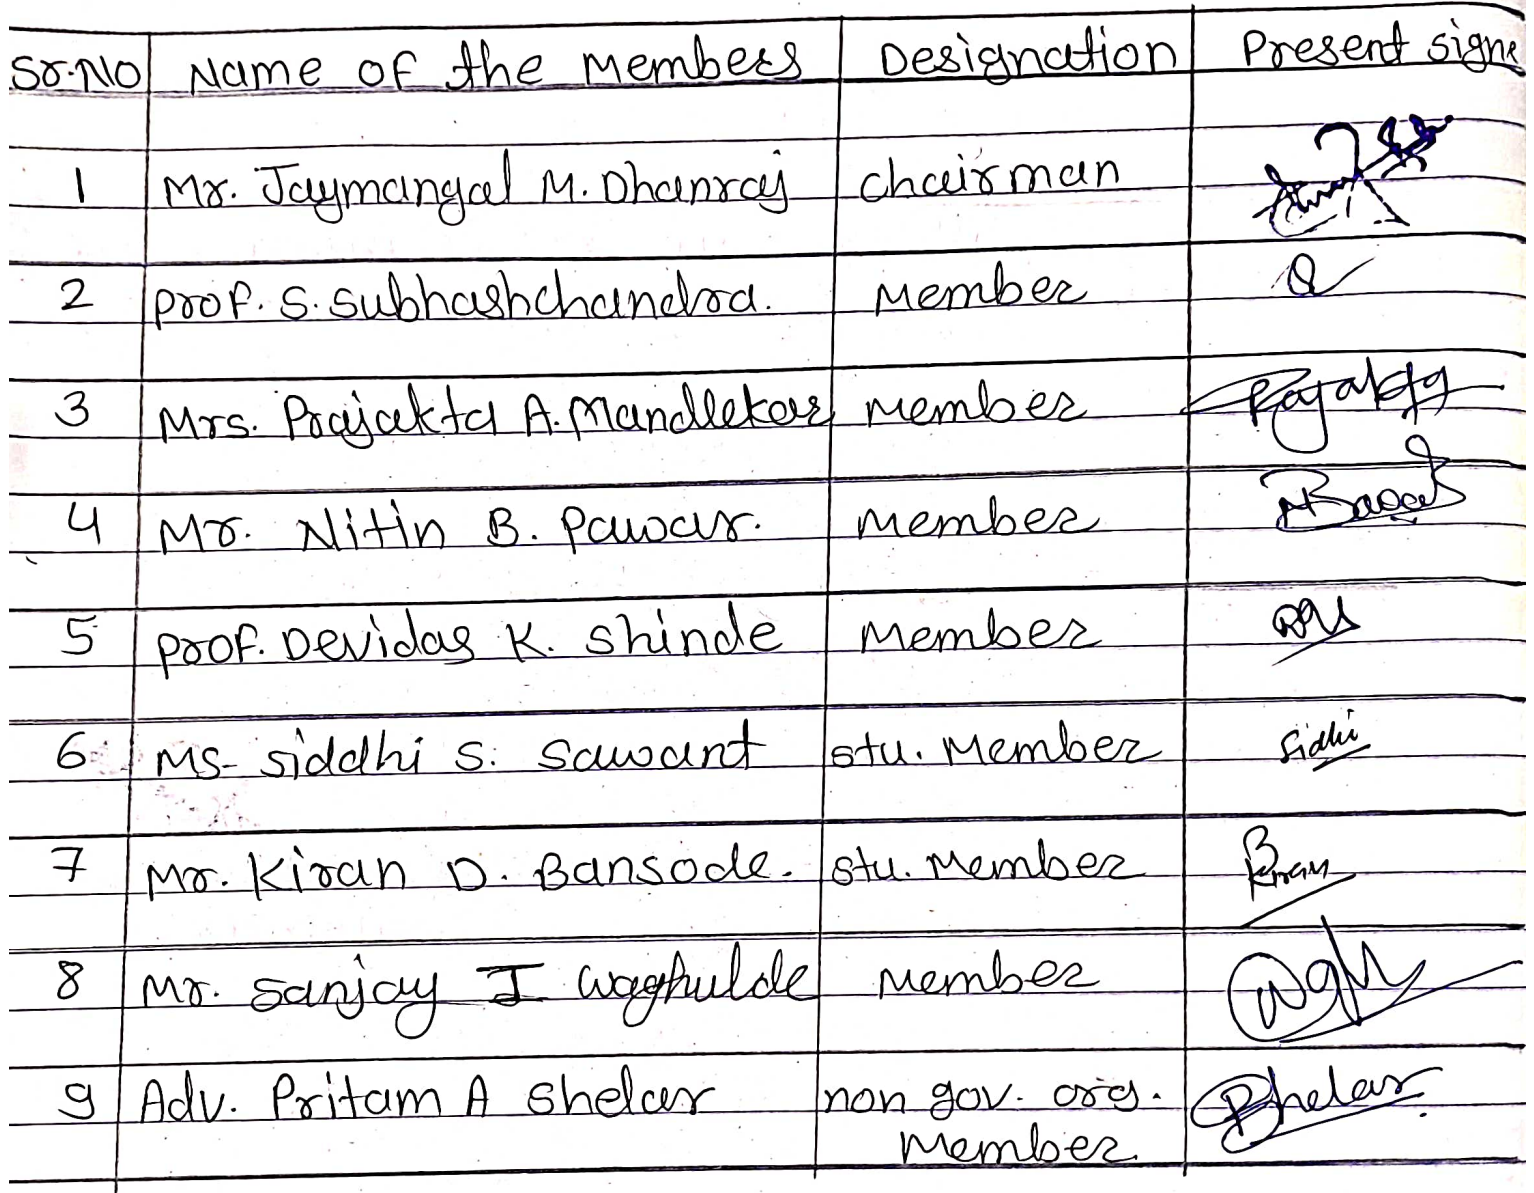 Sr.No Name of the Members Designation Present signe
1 Mr. Jaymangal M. Dhanraj chairman
2 prof. S. Subhashchandra. Member
3 Mrs. Prajakta A. Mandlekar Member Prajakta
4 Mr. Nitin B. Pawar. Member
5 prof. Devidas K. Shinde Member
6 Ms- Siddhi S. Sawant stu. Member Sidhi
7 Mr. Kiran D. Bansode. stu. Member Kiran
8 Mr. Sanjay J Waghulde Member
9 Adv. Pritam A Shelar non gov. org. Shelar
Member